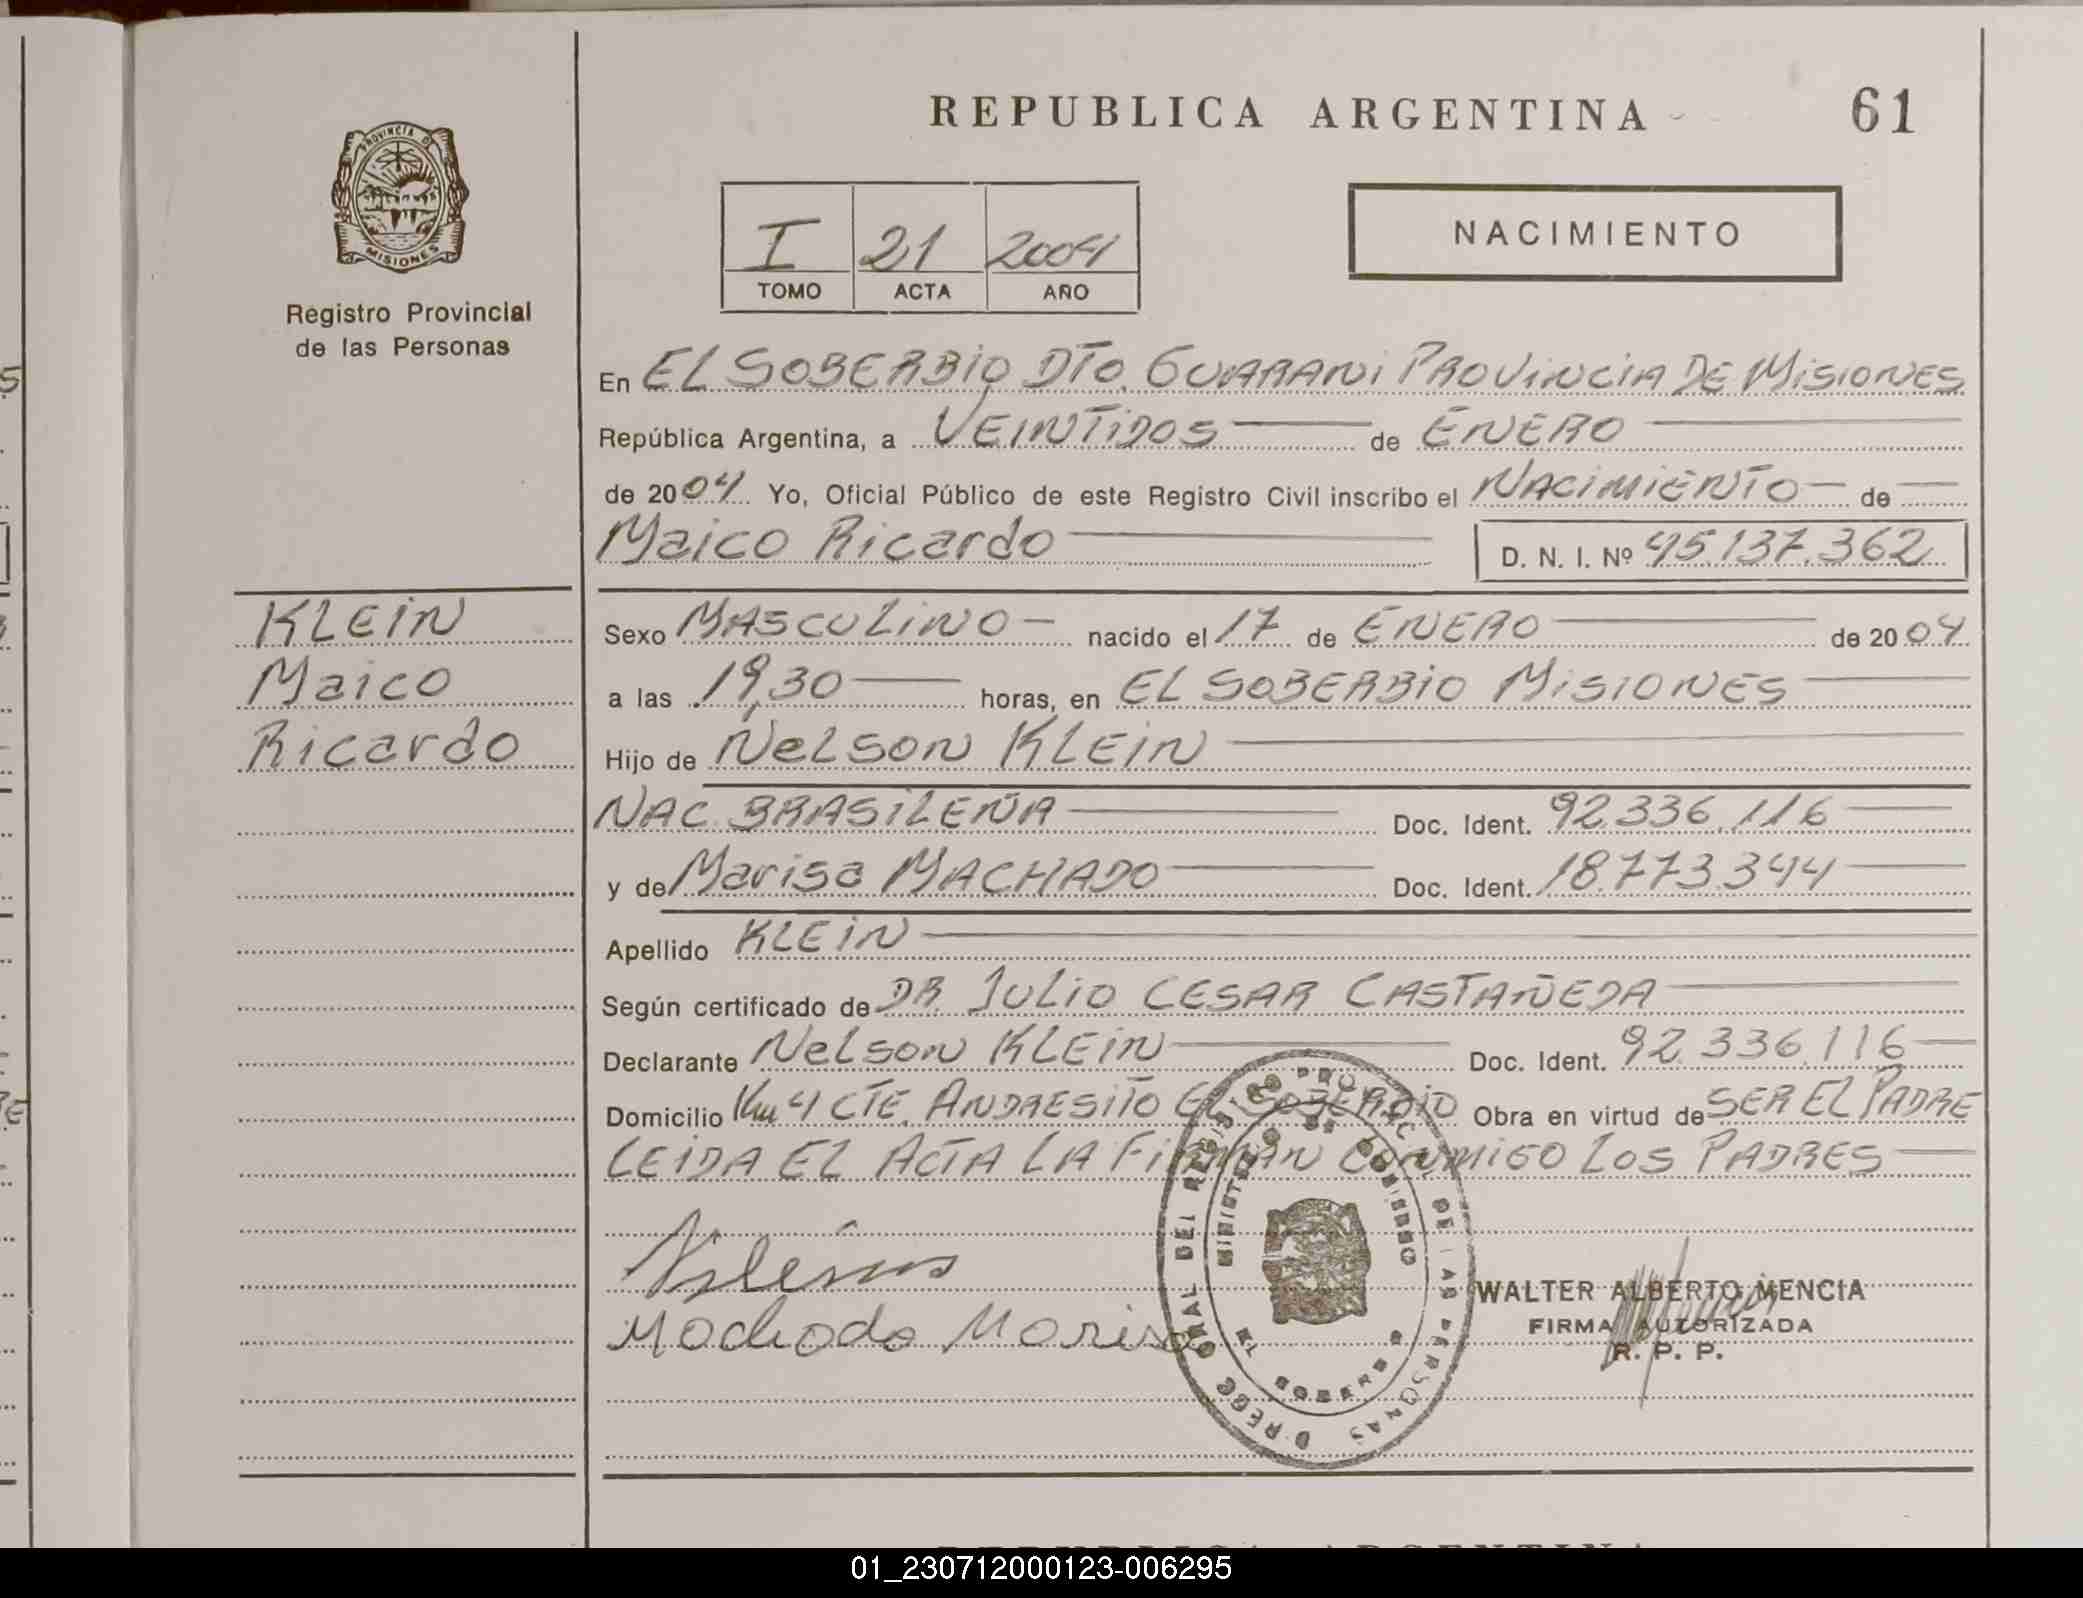 REPUBLICA ARGENTINA
61
PROVINCIA DE
MISIONES
Registro Provincial
de las Personas
I 21 2004
TOMO ACTA AÑO
NACIMIENTO
En EL SOBERBIO DTO. GUARANI PROVINCIA DE MISIONES
República Argentina, a VEINTIDOS de ENERO
de 2004 Yo, Oficial Público de este Registro Civil inscribo el NACIMIENTO de
Maico Ricardo D. N. I. Nº 45.137.362
KLEIN
Maico
Ricardo
Sexo MASCULINO nacido el 17 de ENERO de 2004
a las 19,30 horas, en EL SOBERBIO MISIONES
Hijo de Nelson KLEIN
NAC. BRASILEÑA Doc. Ident. 92.336.116
y de Marisa MACHADO Doc. Ident. 18.773.344
Apellido KLEIN
Según certificado de DR. JULIO CESAR CASTAÑEDA
Declarante Nelson KLEIN Doc. Ident. 92.336.116
Domicilio Km 4 CTE. ANDRESITO EL SOBERBIO Obra en virtud de SER EL PADRE
LEIDA EL ACTA LA FIRMAN CONMIGO LOS PADRES
Machado Marisa
WALTER ALBERTO MENCIA
FIRMA AUTORIZADA
R. P. P.
REPUBLICA ARGENTINA
01_230712000123-006295